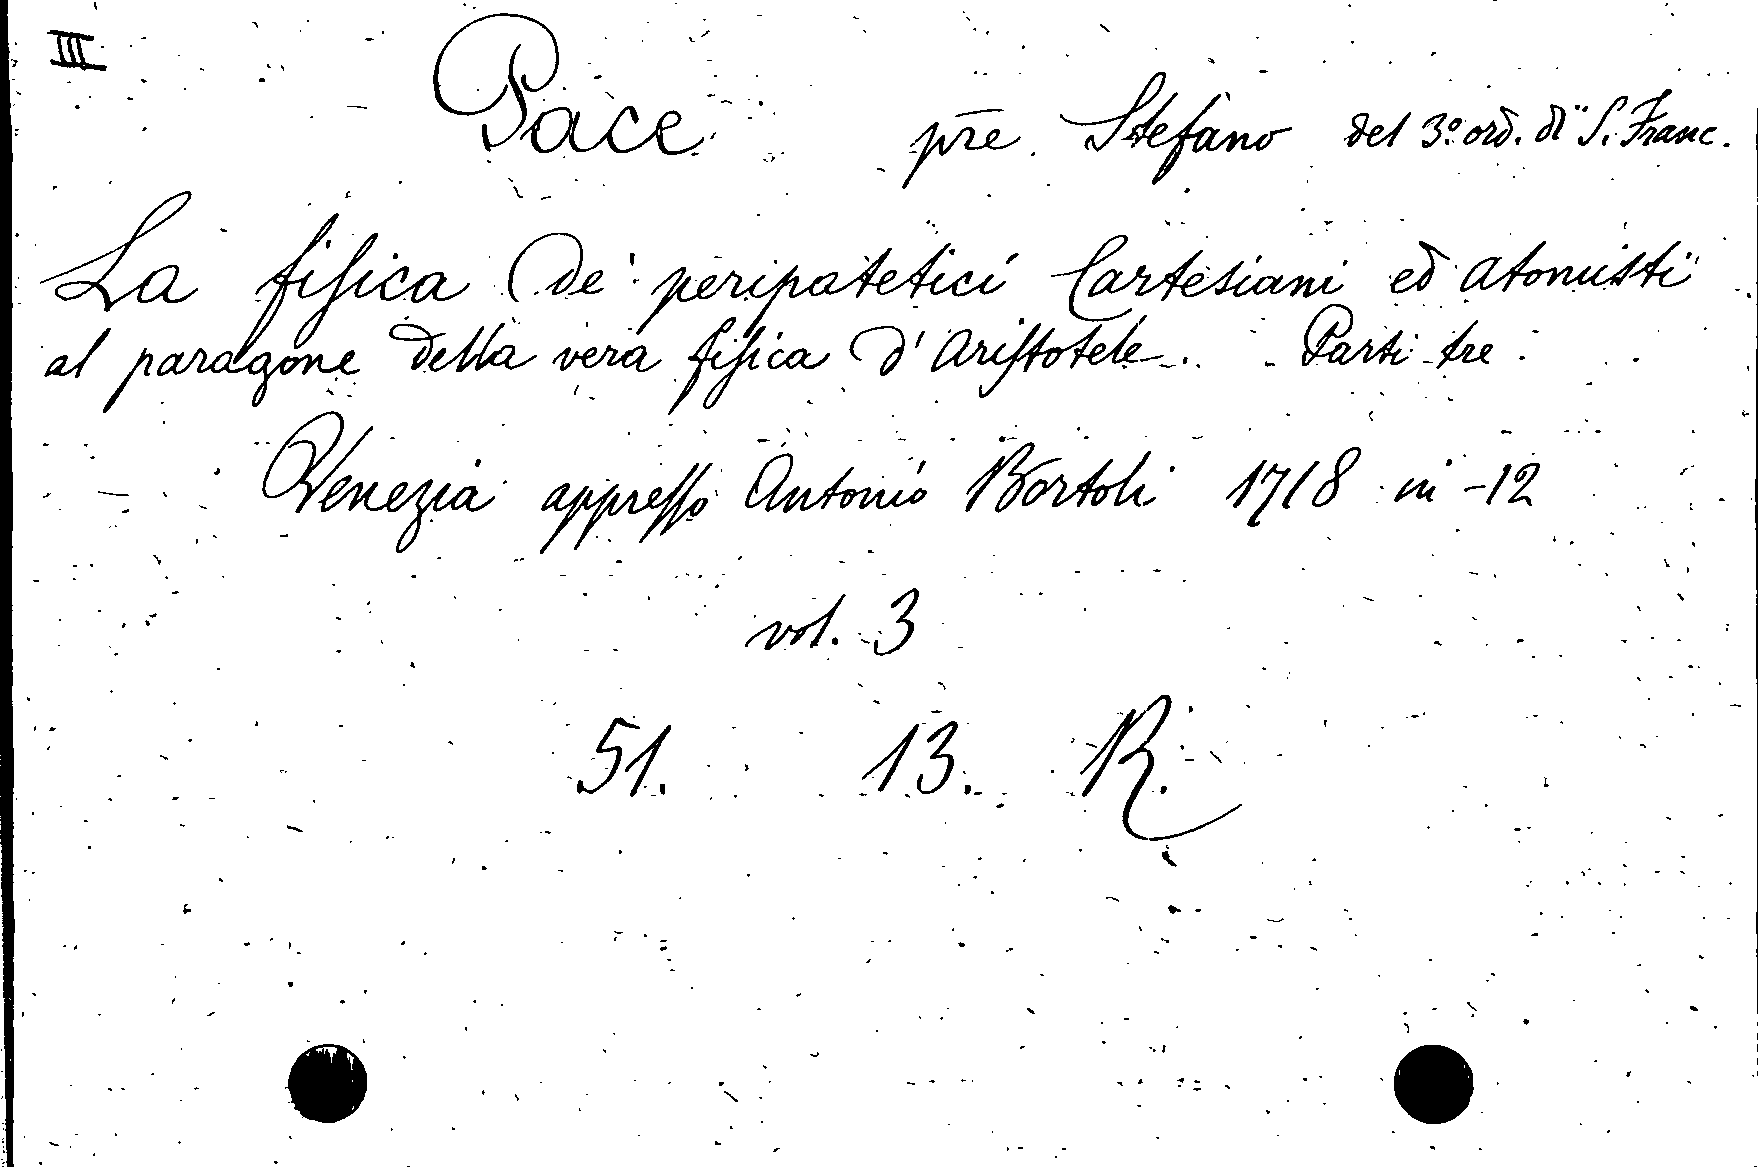 III
Pace pre. Stefano del 3º ord. di S. Franc.
La fisica de' peripatetici Cartesiani ed atomisti
al paragone della vera fisica d'Aristotele. Parti tre.
Venezia appresso Antonio Bortoli 1718 in -12
vol. 3
51. 13. R.